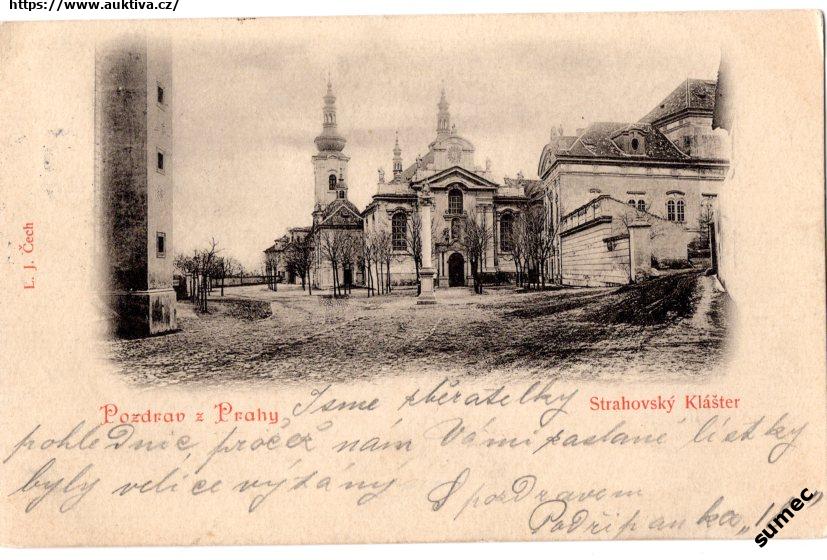 https://www.auktiva.cz/
L. J. Čech
Pozdrav z Prahy
Strahovský Klášter
Jsme zběratelky
pohlednic, pročež nám Vámi zaslané lístky
byly velice výtány
S pozdravem
Podřipanka
sumec